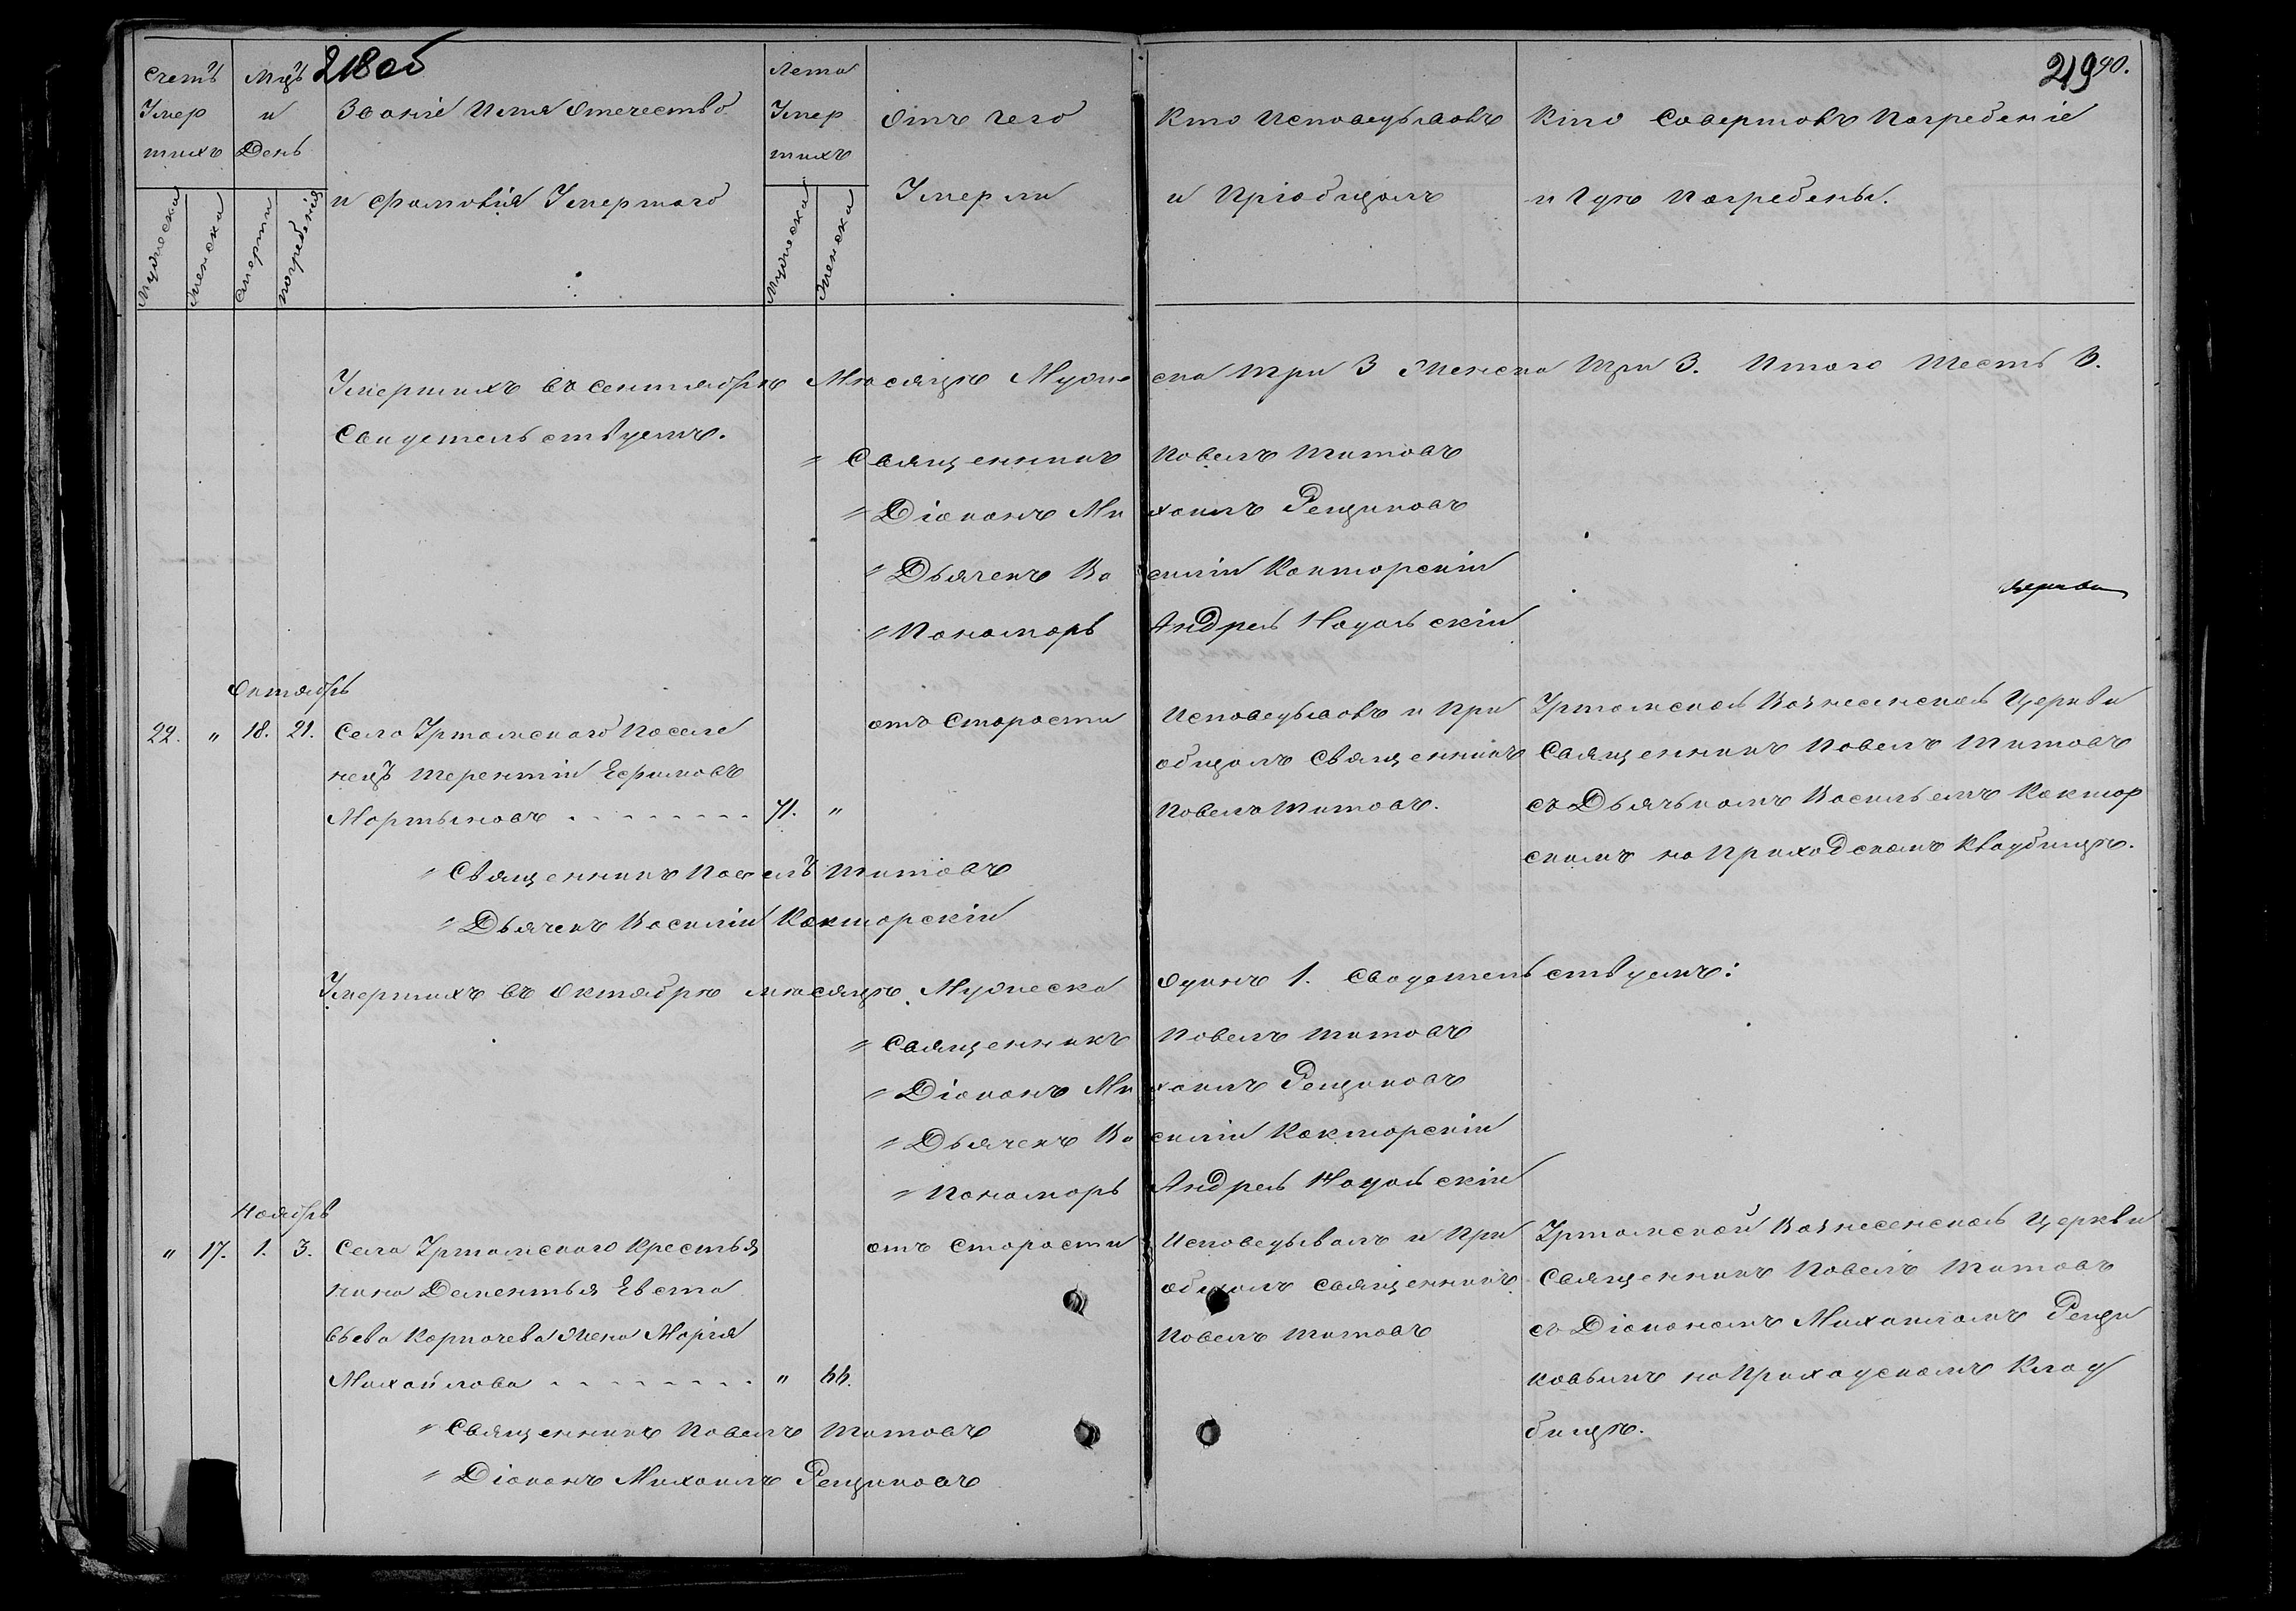 218 об
219 40.
Счетъ Умершихъ
Мужеска
Женска
Мцъ и День
Смерти
погребенія
Званіе Имя Отечество
и Фамилія Умершаго
Лета Умершихъ
Мужеска
Женска
Отъ чего
Умерли
Кто Исповедывалъ
и Пріобщалъ
Кто Совершалъ Погребеніе
и Гдѣ Погребены.
Умершихъ въ сентябрѣ Мѣсяцѣ Мужеска три 3 Женска три 3. Итого Шесть 6.
Свидетельствуемъ.
" Священникъ Павелъ Титовъ
" Діаконъ Михаилъ Рещиковъ
" Дьячекъ Василій Кокшорскій
" Пономарь Андрей
Октябрь
22. " 18. 21. Села Уртамскаго Поселе
нецъ Терентій Ефимовъ
Мартыновъ 71. "
отъ Старости
Исповедывалъ и При
общалъ Священникъ
Павелъ Титовъ.
Уртамской Вознесенской Церкви
Священникъ Павелъ Титовъ
съ Дьячькомъ Васильемъ Кокшор
скимъ на Приходскомъ Кладбищѣ.
" Священникъ Павелъ Титовъ
" Дьячекъ Василій Кокшорскій
Умершихъ въ Октябрѣ мѣсяцѣ Мужеска Одинъ 1. Свидетельствуемъ:
" Священникъ Павелъ Титовъ
" Діаконъ Михаилъ Рещиковъ
" Дьячекъ Василій Кокшорскій
" Пономарь Андрей
Ноябрь
" 17. 1. 3. Села Уртамскаго Крестья
нина Дементья Евста
вьева Карпачева Жена Марія
Михайлова " 66.
отъ Старости
Исповедывалъ и При
общалъ Священникъ
Павелъ Титовъ
Уртамской Вознесенской Церкви
Священникъ Павелъ Титовъ
съ Діакономъ Михаиломъ Рещи
ковымъ на Приходскомъ Клад
бищѣ.
" Священникъ Павелъ Титовъ
" Діаконъ Михаилъ Рещиковъ